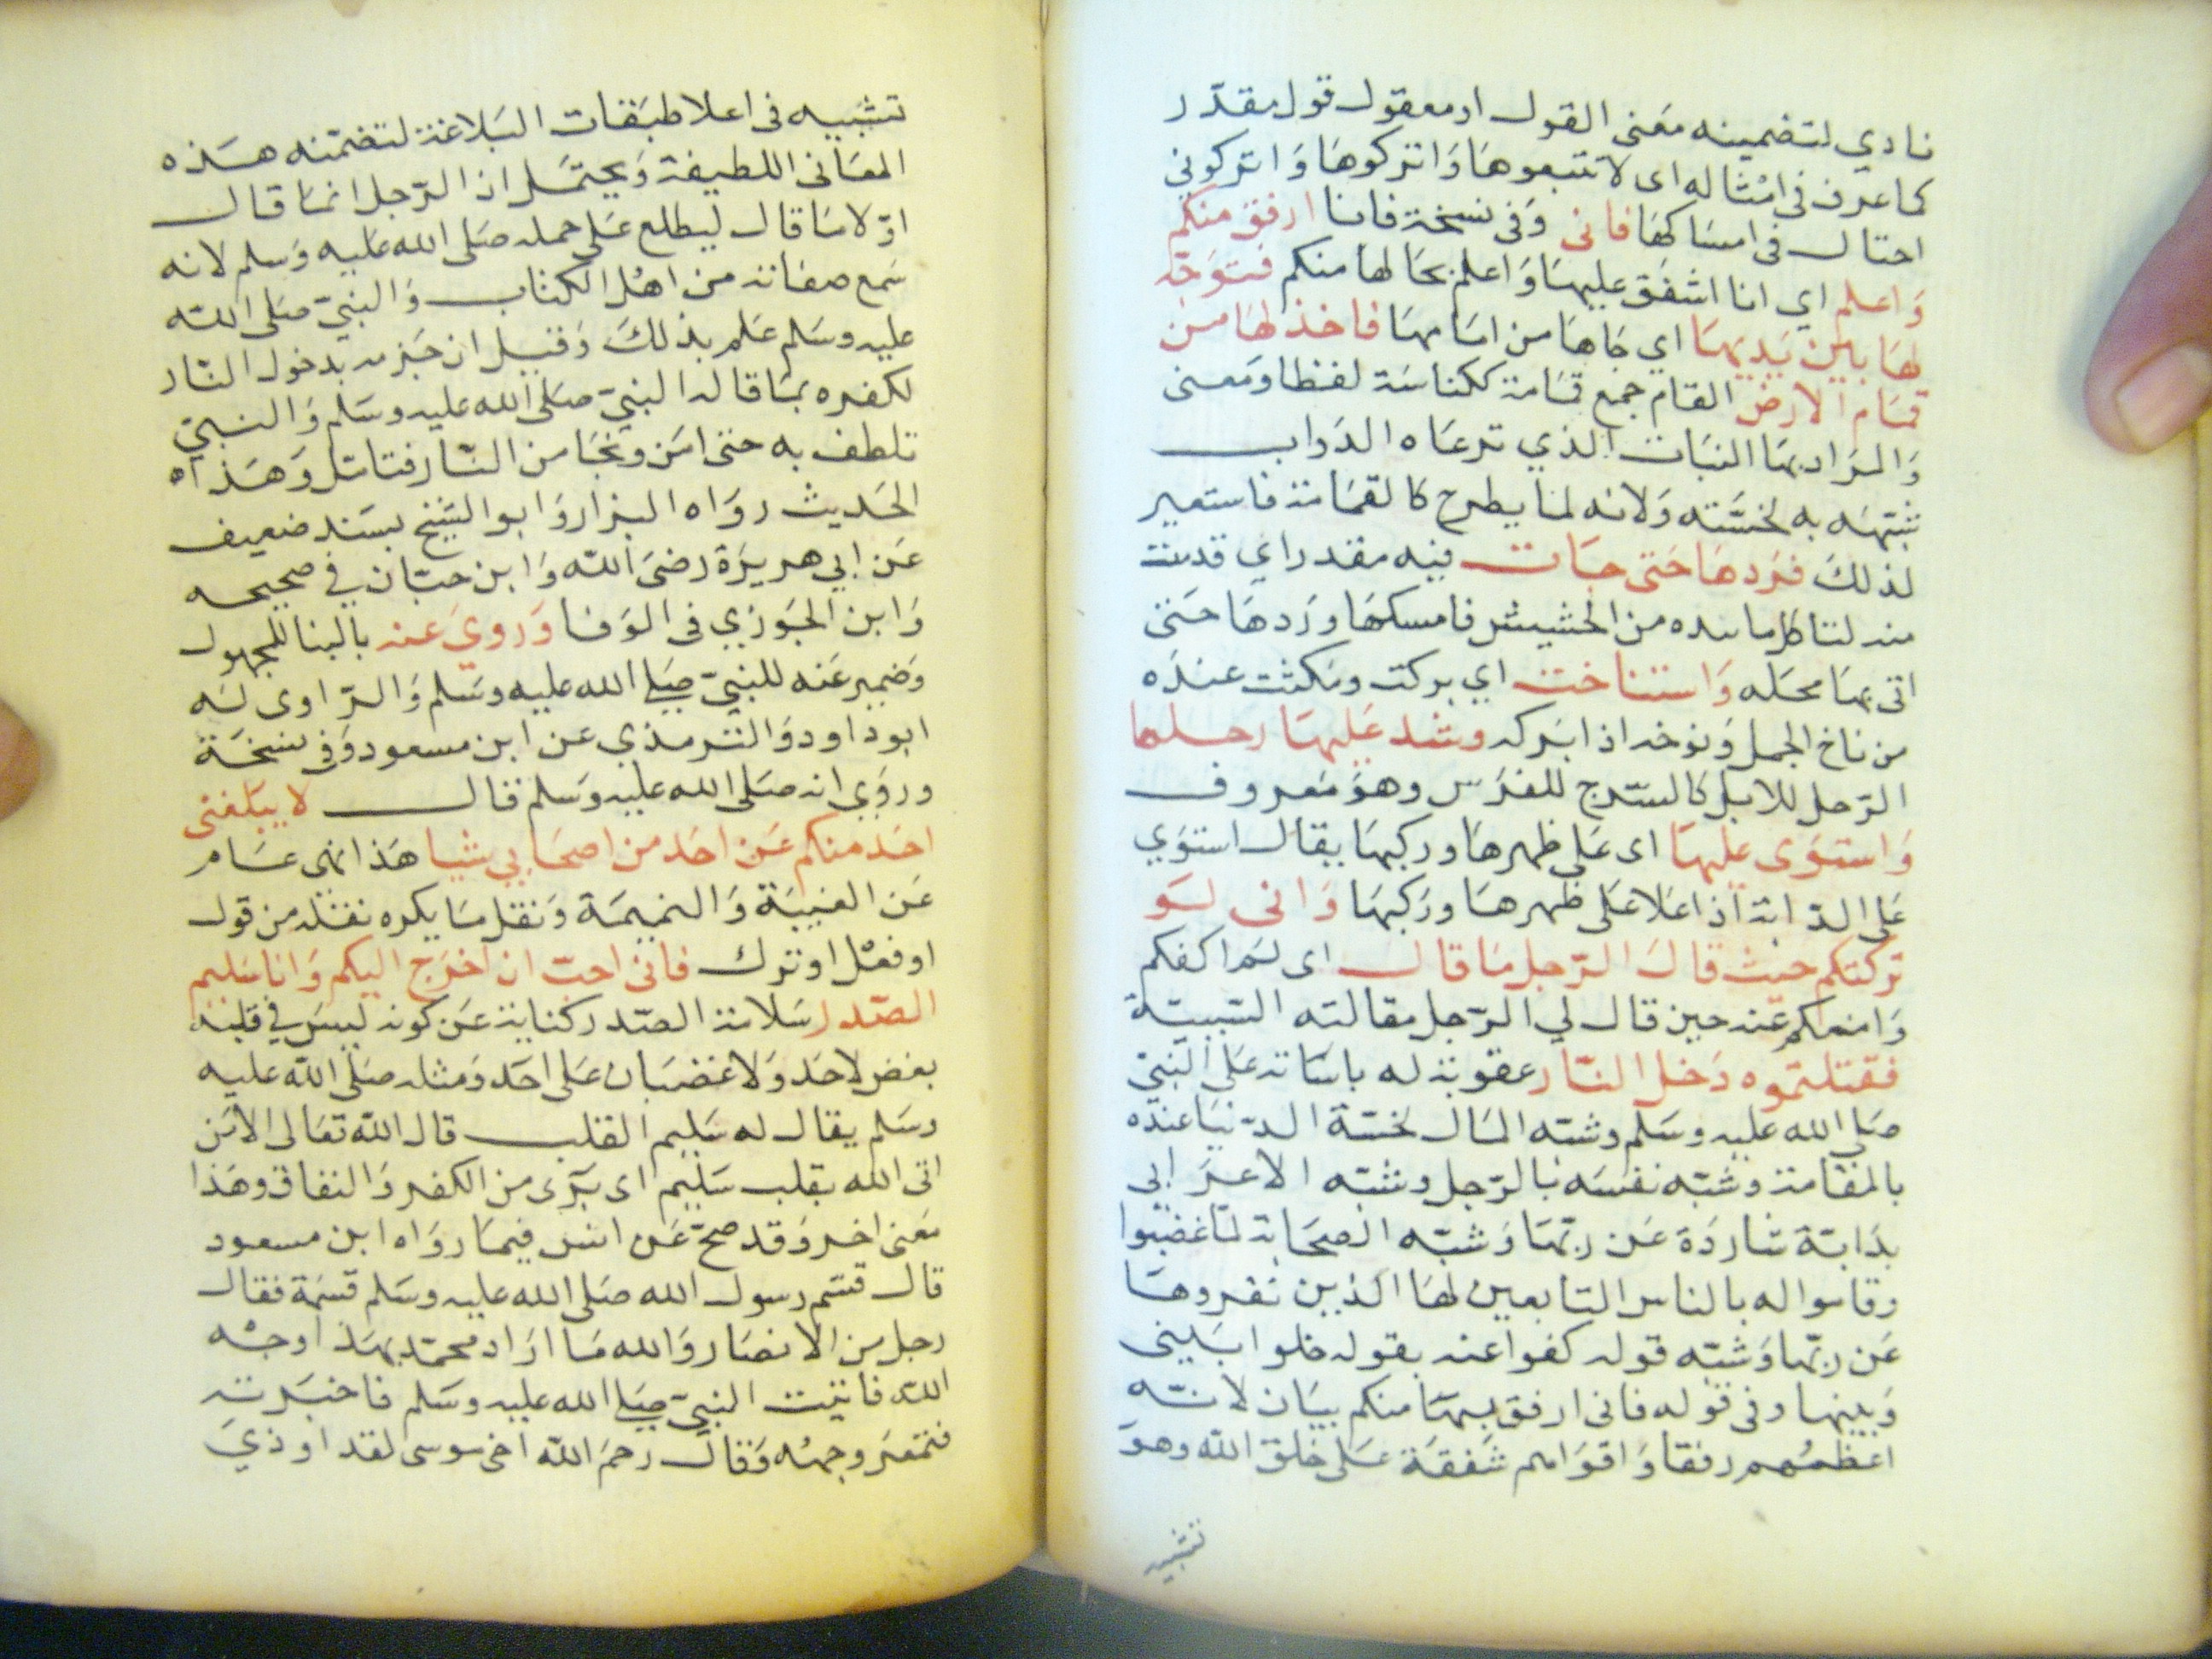 نادي لتضمينه معنى القول او معقول قول مقدّر
كما عرف في امثاله اى لا تتبعوها وَاتركوها وَاتركوني
احتال في امساكها فانى وَفى نسخة فانا ارفق منكم
وَاعلم اي انا اشفق عليها وَاعلم بحالها منكم فتوجّه
لها بين يديها اي جاها من امامها فاخذ لها من
قمام الارض القمام جمع قمامة ككناسة لفظا ومعنى
وَالمراد بها النبات الذي ترعاه الدَواب
شبّهه به لخسّته وَلانه لما يطرح كالقمامة فاستعير
لذلك فردها حَتى جات فيه مقدر اي قدمت
منه لتاكل ما بيده من الحشيش فامسكها وردها حَتى
اتى بها محله وَاستناخت اي بركت ومكثت عنده
من ناخ الجمل وَنوخه اذا ابركه وشد عليها رحلها
الرّحل للابل كالسّرج للفرس وهو معروف
وَاستوى عليها اى على ظهرها وركبها يقال استوي
على الدّابة اذا علا على ظهرها وركبها وَانى لو
تركتكم حيث قال الرّجل ما قال اى لم اكفكم
وَامنعكم عنه حين قال لي الرّجل مقالته السّيية
فقتلتموه دَخل النّار عقوبة له باساته على النّبيّ
صلى الله عليه وسلم وشبّه المال لخسّة الدّنيا عنده
بالقمامة وشبّه نفسه بالرّجل وشبّه الاعرابي
بدَابّة شاردَة عن ربّها وَشبّه الصحابة لمّا غضبوا
وقاموا له بالناس التابعين لها الذين نفروها
عن ربّها وَشبّه قوله كفوا عنه بقوله خلوا بَيني
وَبينها وفى قوله فانى ارفق بها منكم بيان لانّه
اعظمُهم رفقا وَاقواهم شفقة على خلق الله وهو
تشبيه
تشبيه فى اعلا طبقات البَلاغة لتضمّنه هذه
المعَانى اللطيفة وَيحتمل ان الرّجل انما قال
اوّلا ما قال ليطلع على حمله صلى الله عليه وَسلم لانه
سَمع صفاته من اهْل الكتاب وَالنبيّ صلى الله
عليه وسلم علم بذلكَ وَقيل ان خبره بدخول النّار
لكفره بما قاله النبيّ صلى الله عليه وسَلم وَالنبيّ
تلطف به حتى امَن ونجَا من النّار فتامّل وَهَذا
الحَديث روَاه البزار وَابو الشيخ بسَند ضعيف
عَن ابي هريرَة رضىَ الله وَابن حبّان في صحيحه
وَابن الجَوزي فى الوَفا وَروي عنه بالبنا للمجهول
وَضمير عَنه للنبيّ صلى الله عليه وسَلم وَالرّاوى له
ابو داود وَالترمذي عن ابن مسعود وَفى نسخة
وروَي انه صلى الله عليه وسلم قال لا يبلغنى
احَد منكم عَن احَد من اصحَابي شيا هَذا نهى عام
عَن الغيبَة وَالنميمَة وَنقل ما يكره نقله من قول
او فعْل او ترك فانى احبّ ان اخرج اليكم وَانا سَليم
الصّدر سَلامة الصّدر كناية عَن كونه ليسَ في قلبه
بغض لاحَد وَلا غضبَان على احَد وَمثله صلى الله عليه
وسلم يقال له سَليم القلب قال الله تعَالى الا مَن
اتى الله بقلب سَليم اى برَى من الكفر وَالنفاق وهَذا
معنى اخر وَقد صحّ عَن انس فيما روَاه ابن مسعود
قال قسَم رسول الله صلى الله عليه وسلم قسمَة فقال
رجل من الانصَار وَالله مَا ارَاد محمّد بهَذا وجْه
الله فاتيت النبيّ صلى الله عليه وسلم فاخبرته
فتمعرَ وجهُه فقال رحمَ الله اخى موسى لقد اوذيَ